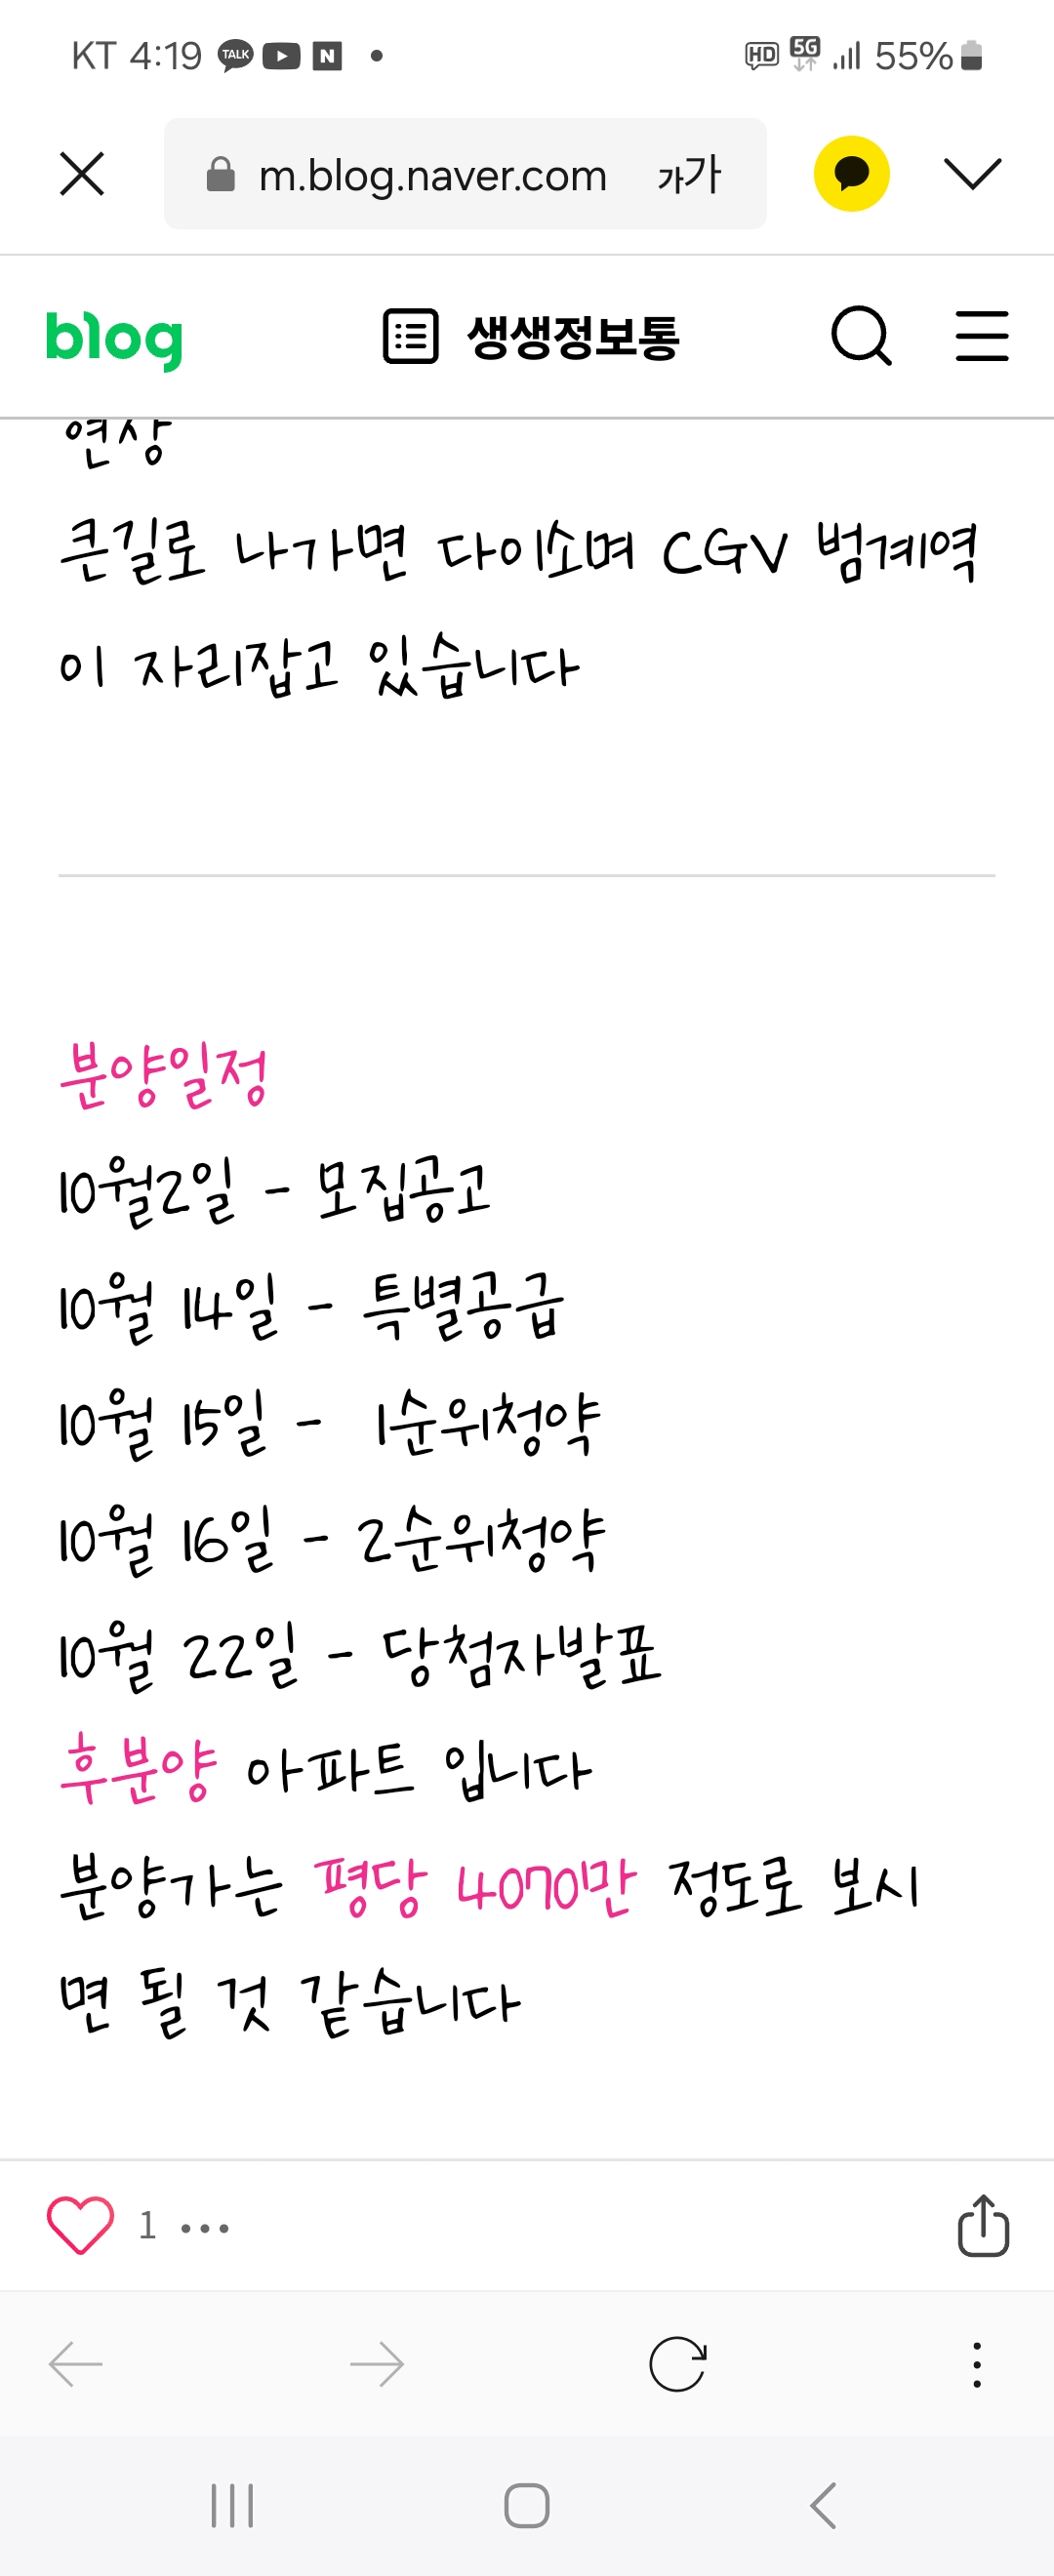 KT 4:19 TALK N HD 5G 55%
m.blog.naver.com 가가
blog 생생정보통
연상
큰길로 나가면 다이소며 CGV 범계역
이 자리잡고 있습니다
분양일정
10월2일 - 모집공고
10월 14일 - 특별공급
10월 15일 - 1순위청약
10월 16일 - 2순위청약
10월 22일 - 당첨자발표
후분양 아파트 입니다
분양가는 평당 4070만 정도로 보시
면 될 것 같습니다
1